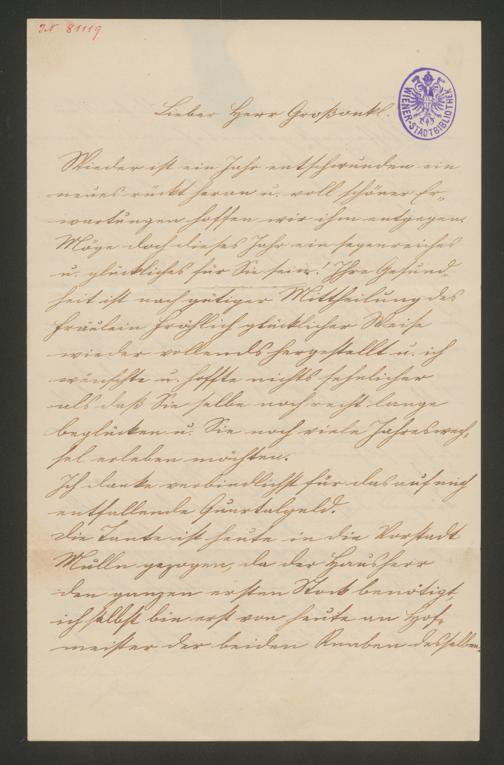 IN 81119
WIENER-STADTBIBLIOTHEK
Lieber Herr Großonkl.
Wieder ist ein Jahr entschwunden ein
neues rückt heran u. voll schöner Er-
wartungen hoffen wir ihm entgegen.
Möge doch dieses Jahr ein segenreiches
u. glückliches für Sie sein! Ihre Gesund-
heit ist nach gütiger Mittheilung des
Fräulein Fröhlich glücklicher Weise
wieder vollends hergestellt u. ich
wünschte u. hoffte nichts sehnlicher
als daß Sie selbe noch recht lange
beglücken u. Sie noch viele Jahreswech-
sel erleben möchten.
Ich danke verbindlichst für das auf mich
entfallende Quartalgeld.
Die Tante ist heute in die Vorstadt
Mülln gezogen, da der Hausherr
den ganzen ersten Stock benötigt,
ich selbst bin erst von heute an Hof-
meister der beiden Knaben desselben.